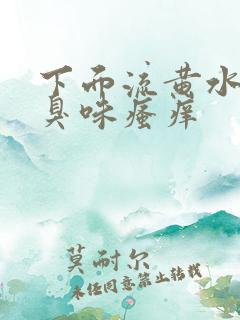 下而流黄水
臭味瘙痒
莫耐尔
未经同意禁止转载